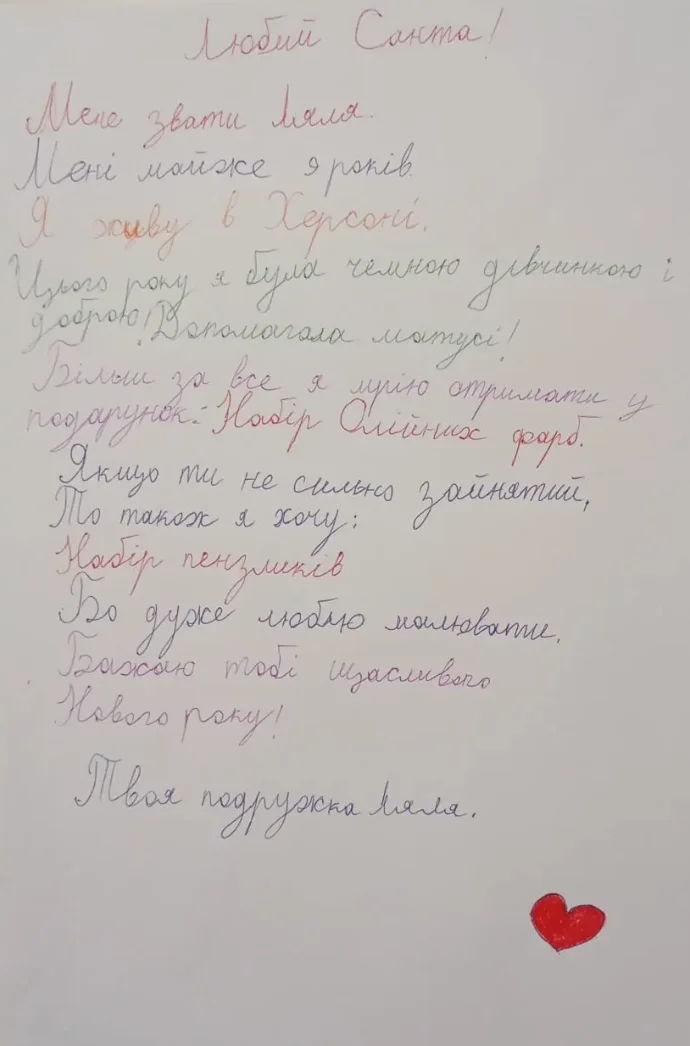 Любий Санта!
Мене звати Ляля.
Мені майже 9 років.
Я живу в Херсоні.
Цього року я була чемною дівчинкою і
доброю! Допомагала матусі!
Більш за все я мрію отримати у
подарунок: Набір Олійних фарб.
Якщо ти не сильно зайнятий,
То також я хочу:
Набір пензликів
Бо дуже люблю малювати.
Бажаю тобі щасливого
Нового року!
Твоя подружка Ляля.